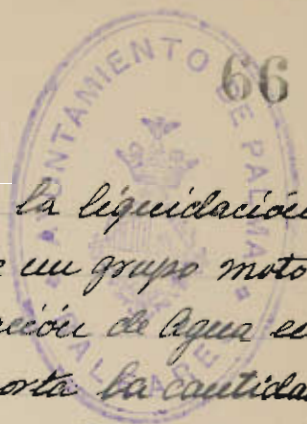 66
AYUNTAMIENTO DE PALMA
la liquidación
un grupo moto
ación de Agua en
orta la cantidad